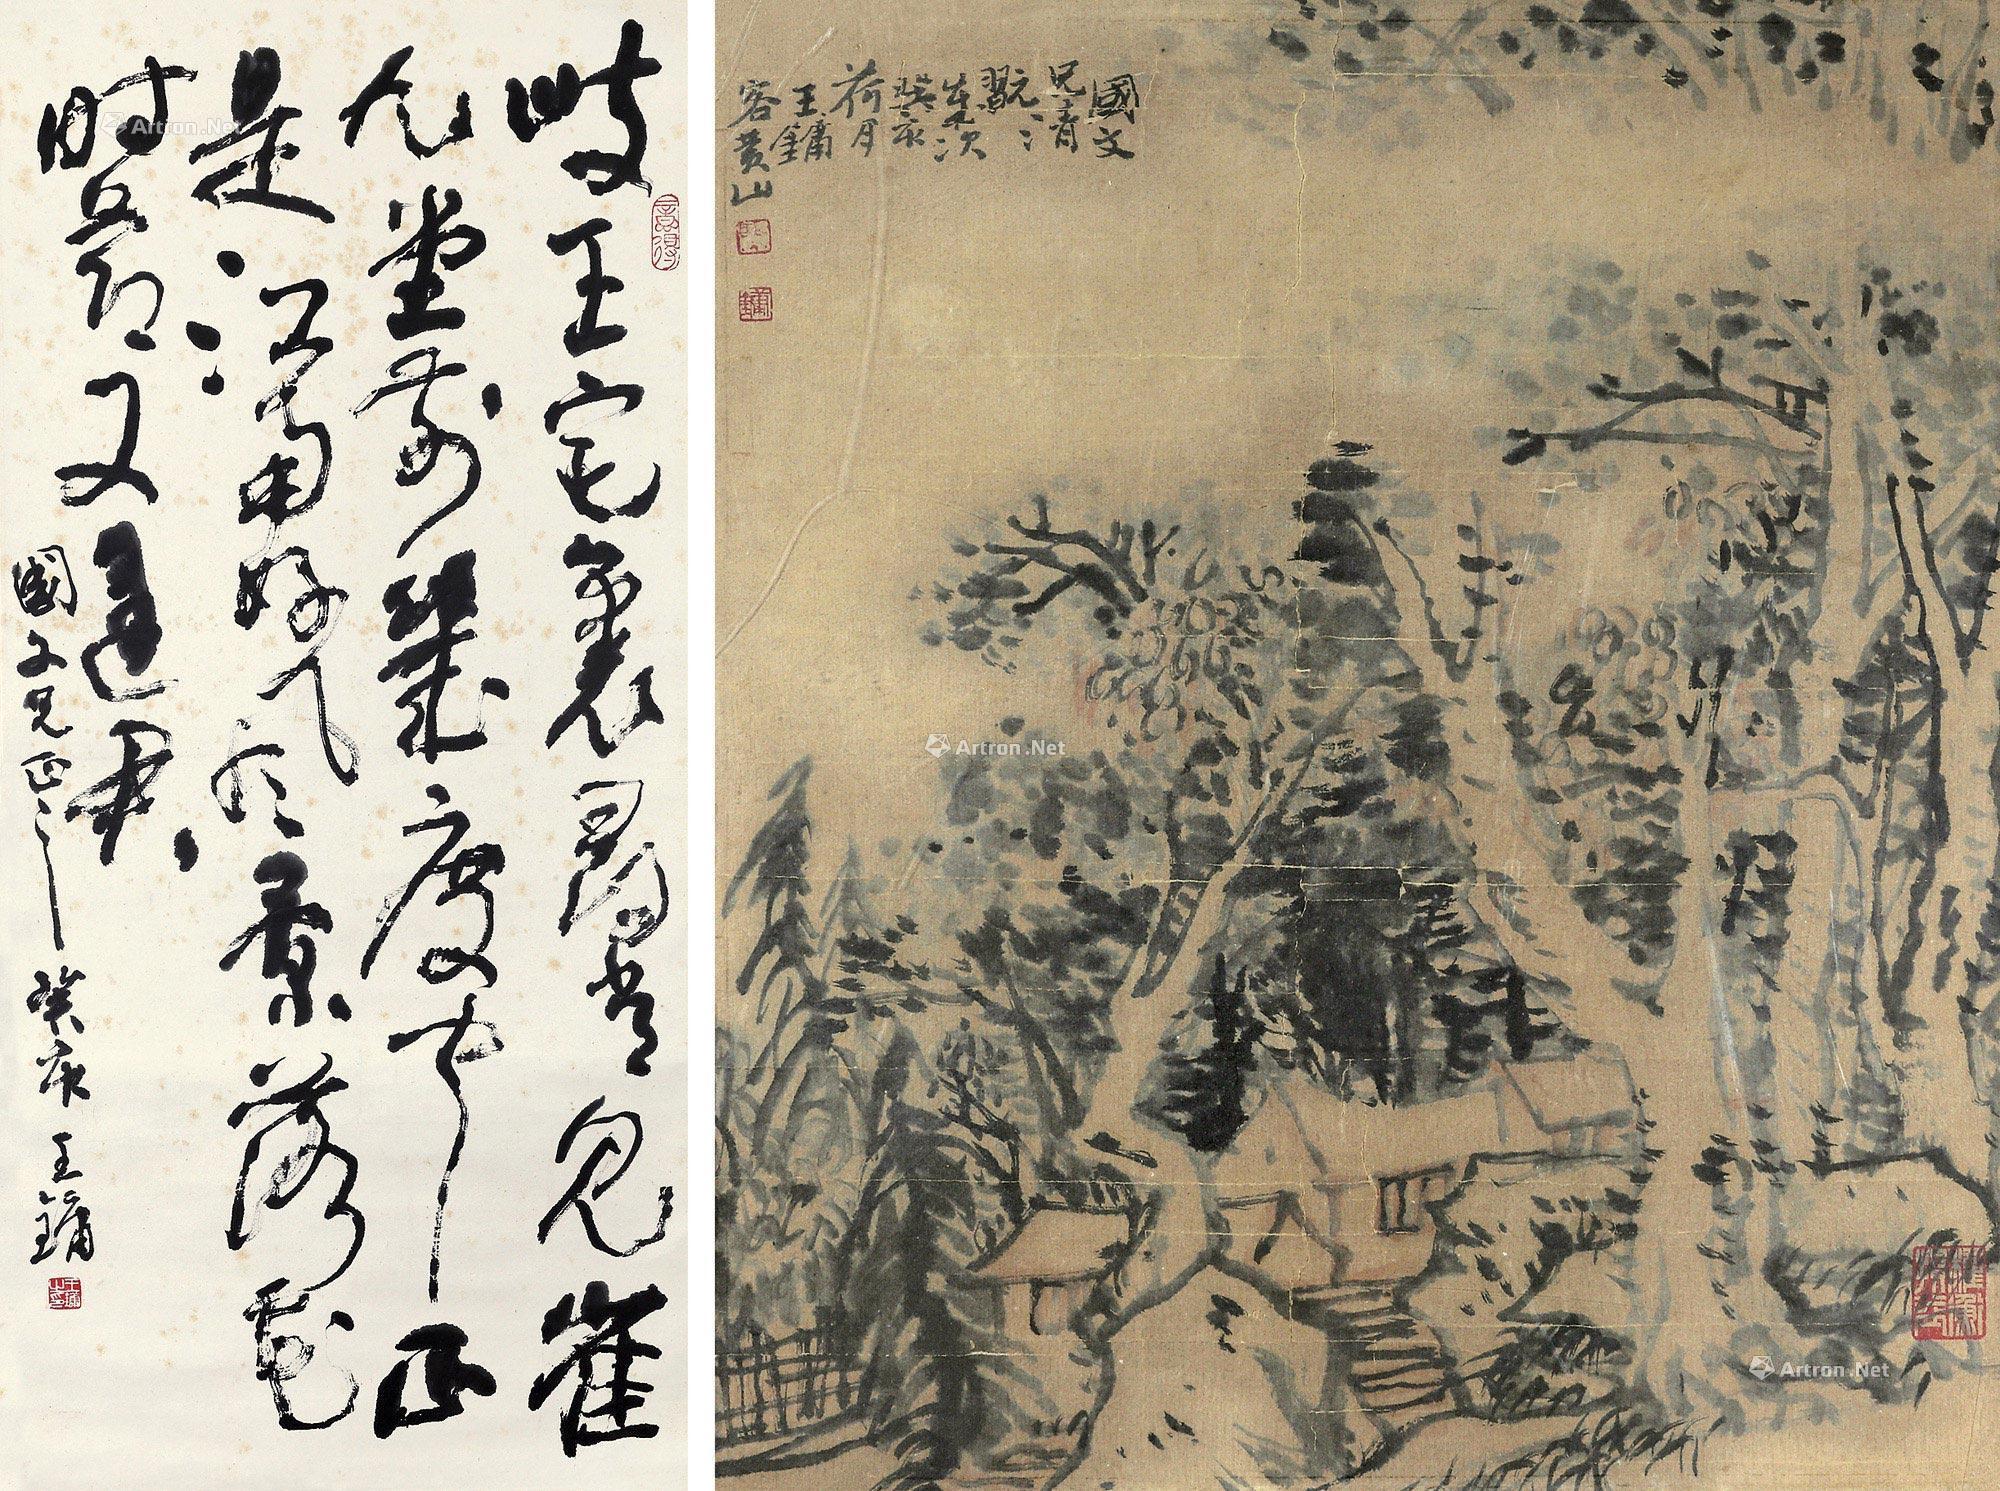 岐王宅裏尋常見崔
九堂前幾度聞正
是江南好風景落花
时節又逢君
國文兄正之 癸亥 王鏞
國文
兄清
翫
歲次
癸亥
荷月
王鏞
客黄山
Artron.Net
Artron.Net
Artron.Net